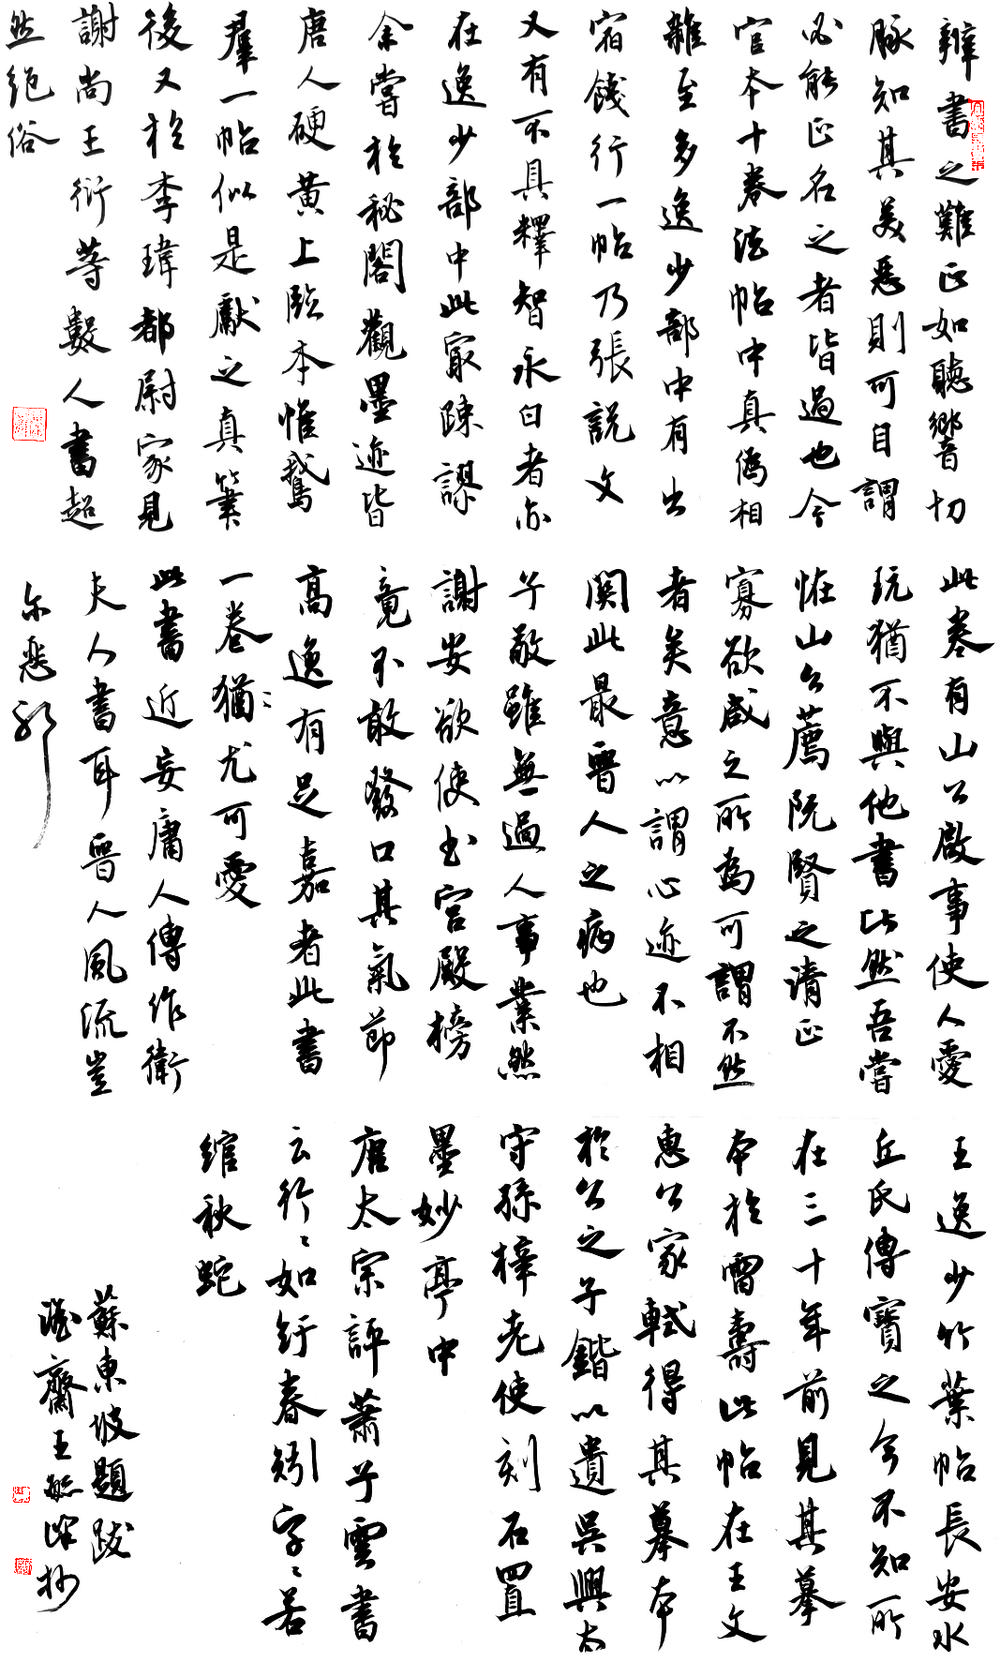 辨書之難正如聽響切
脉知其美惡則可自謂
必能正名之者皆過也今
官本十卷法帖中真偽相
雜至多逸少部中有出
宿餞行一帖乃張説文
又有不具釋智永白者亦
在逸少部中此最疎謬
余嘗於秘閣觀墨迹皆
唐人硬黄上臨本惟鵞
羣一帖似是獻之真筆
後又於李瑋都尉家見
謝尚王衍等數人書超
然絶俗
此卷有山公啟事使人愛
玩猶不與他書比然吾嘗
恠山公薦阮賢之清正
寡欲咸之所為可謂不然
者矣意以謂心迹不相
関此最晋人之病也
子敬雖無過人事業然
謝安欲使書宫殿榜
竟不敢發口其氣節
高逸有足嘉者此書
一卷猶尤可愛
此書近妄庸人傳作衛
夫人書耳晋人風流豈
尔惡耶
王逸少竹葉帖長安水
丘氏傳寶之今不知所
在三十年前見其摹
本於雷壽此帖在王文
惠公家軾得其摹本
於公之子鍇以遺吴興太
守孫梓老使刻石置
墨妙亭中
唐太宗評蕭子雲書
云行〻如紆春蚓字〻若
綰秋蛇
蘇東坡題跋
澄齋王毓峄抄